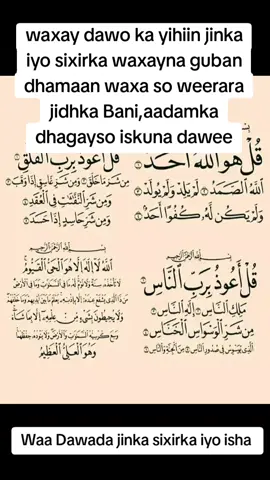 waxay dawo ka yihiin jinka
iyo sixirka waxayna guban
dhamaan waxa so weerara
jidhka Bani,aadamka
dhagayso iskuna dawee
قُلْ هُوَ اللَّهُ أَحَدٌ
اللَّهُ الصَّمَدُ لَمْ يَلِدْ وَلَمْ يُولَدْ
وَلَمْ يَكُن لَّهُ كُفُوًا أَحَدٌ
قُلْ أَعُوذُ بِرَبِّ الْفَلَقِ
مِن شَرِّ مَا خَلَقَ وَمِن شَرِّ غَاسِقٍ إِذَا وَقَبَ
وَمِن شَرِّ النَّفَّٰثَٰتِ فِي الْعُقَدِ
وَمِن شَرِّ حَاسِدٍ إِذَا حَسَدَ
بِسْمِ اللَّهِ الرَّحْمَٰنِ الرَّحِيمِ
قُلْ أَعُوذُ بِرَبِّ النَّاسِ
مَلِكِ النَّاسِ إِلَٰهِ النَّاسِ
مِن شَرِّ الْوَسْوَاسِ الْخَنَّاسِ
الَّذِي يُوَسْوِسُ فِي صُدُورِ النَّاسِ مِنَ الْجِنَّةِ وَالنَّاسِ
بِسْمِ اللَّهِ الرَّحْمَٰنِ الرَّحِيمِ
اللَّهُ لَا إِلَٰهَ إِلَّا هُوَ الْحَيُّ الْقَيُّومُ
لَا تَأْخُذُهُ سِنَةٌ وَلَا نَوْمٌ لَّهُ مَا فِي السَّمَٰوَٰتِ وَمَا فِي الْأَرْضِ
مَن ذَا الَّذِي يَشْفَعُ عِندَهُ إِلَّا بِإِذْنِهِ يَعْلَمُ مَا بَيْنَ أَيْدِيهِمْ وَمَا خَلْفَهُمْ
وَلَا يُحِيطُونَ بِشَيْءٍ مِّنْ عِلْمِهِ إِلَّا بِمَا شَاءَ
وَسِعَ كُرْسِيُّهُ السَّمَٰوَٰتِ وَالْأَرْضَ وَلَا يَئُودُهُ حِفْظُهُمَا
وَهُوَ الْعَلِيُّ الْعَظِيمُ
Waa Dawada jinka sixirka iyo isha